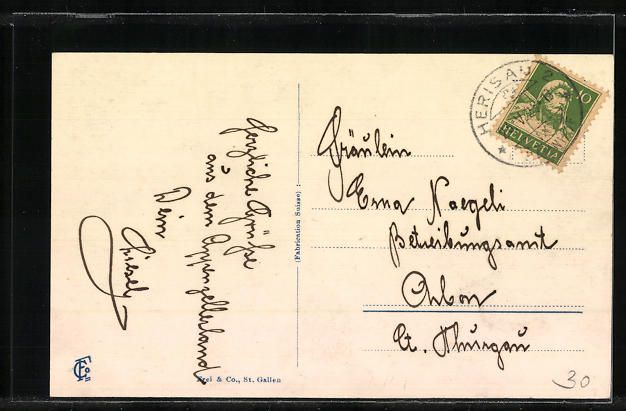 Herzliche Grüsse
aus dem Appenzellerland
Dein
(Fabrication Suisse)
Frei & Co., St. Gallen
HERISAU 2
10
HELVETIA
Fräulein
Erna Naegeli
Betreibungsamt
Arbon
Ct. Thurgau
30